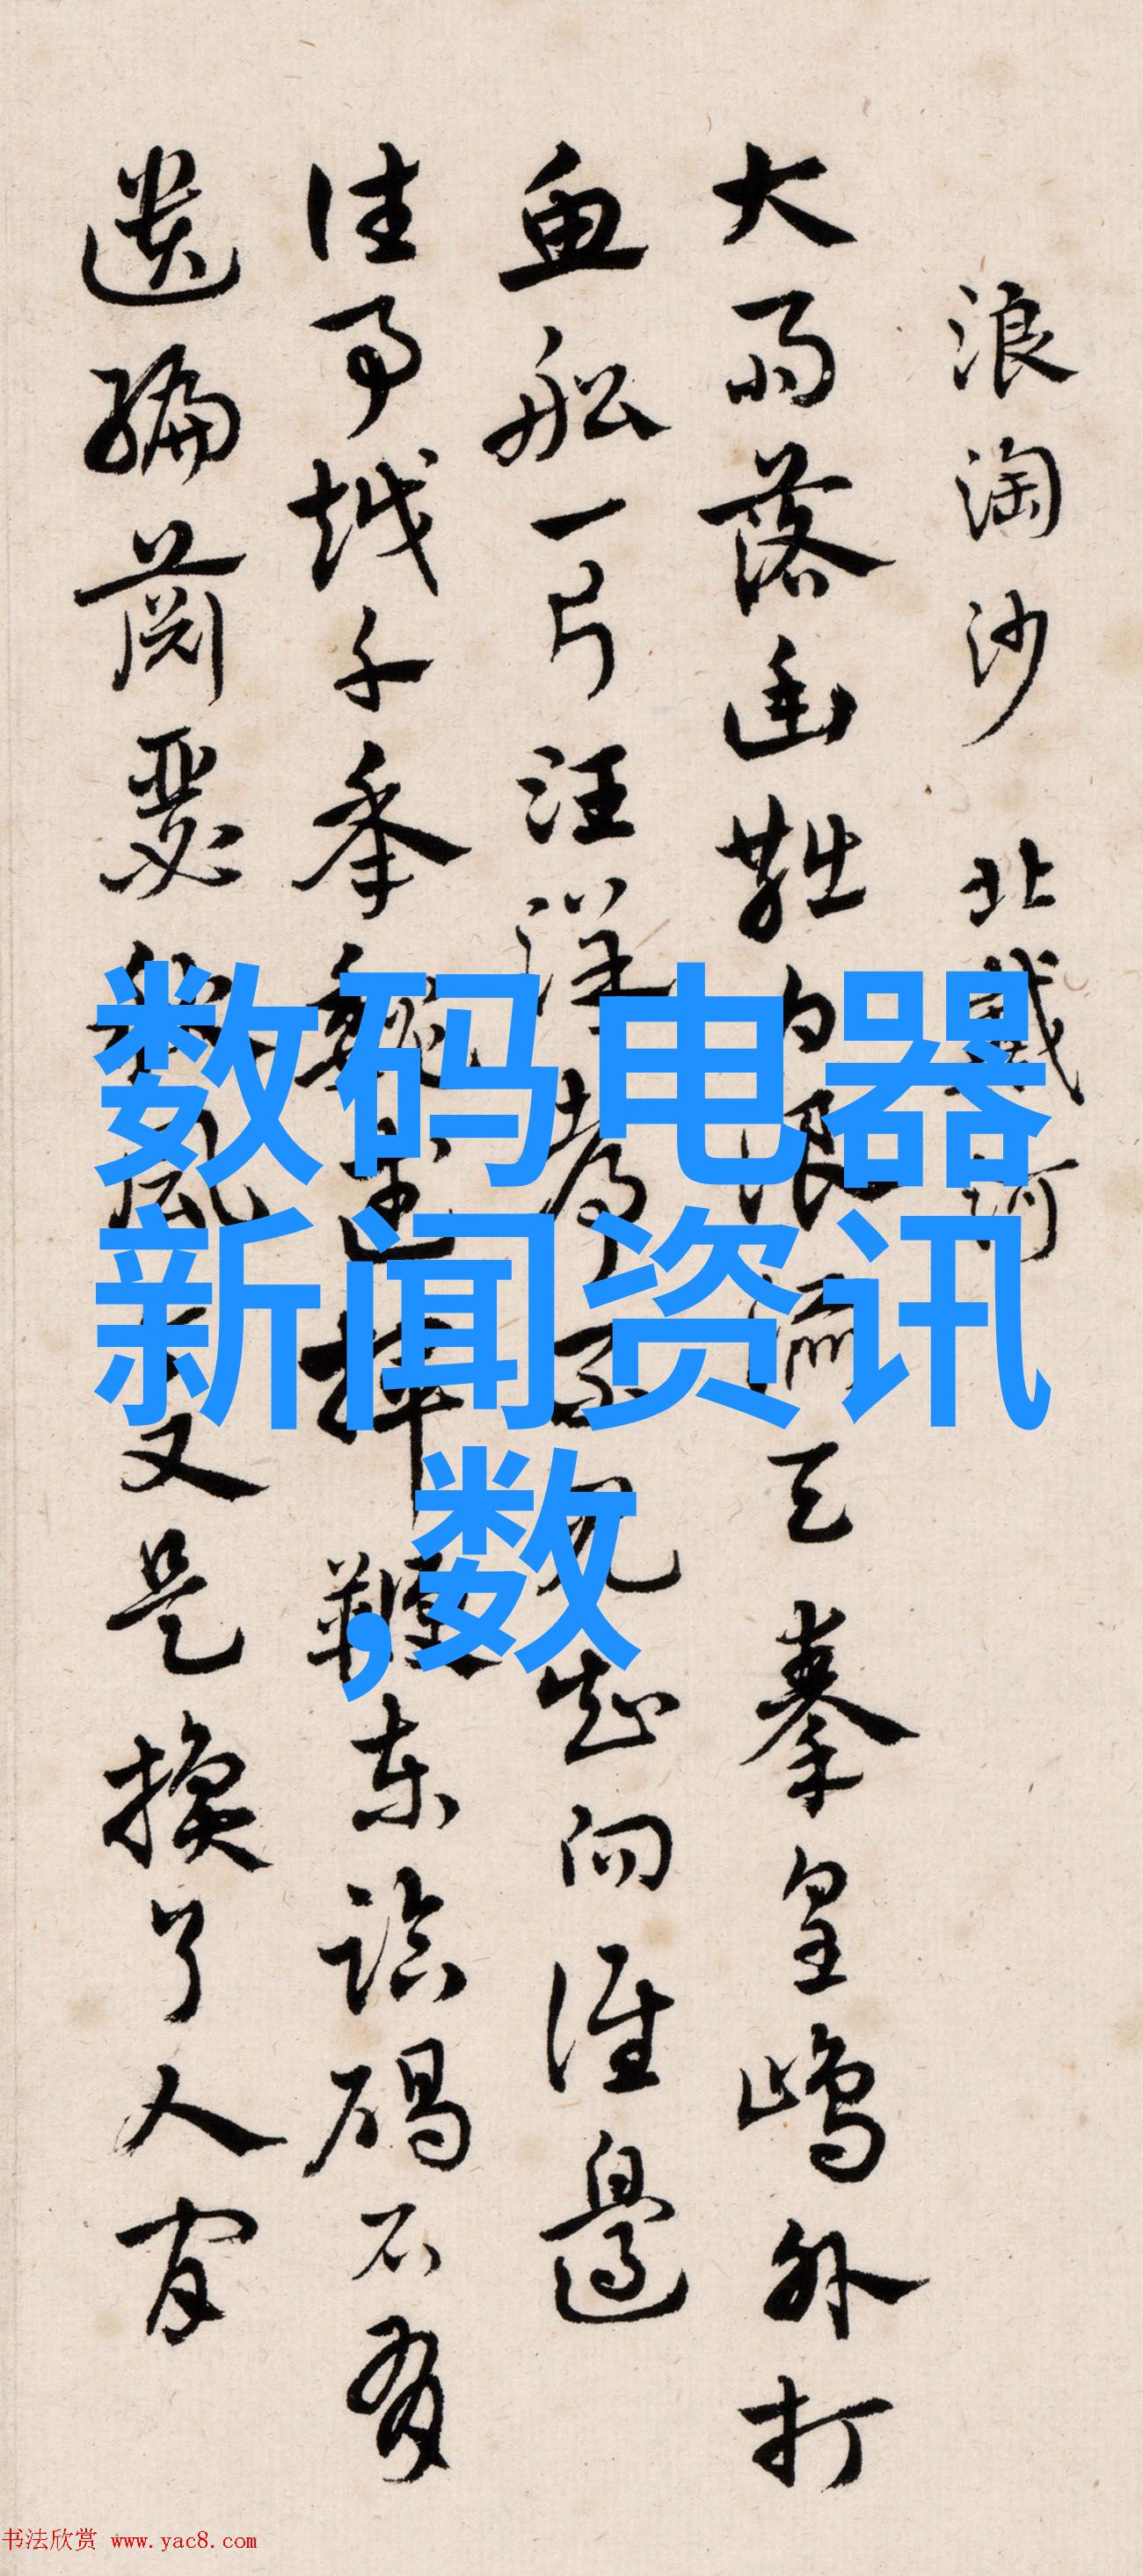 浪淘沙 北戴河
大雨落幽燕白浪滔天秦皇島外打
魚船一片汪洋都不見知向誰邊
往事越千年魏武揮鞭東臨碣石有
遺編蕭瑟秋風今又是換了人間
数码电器
新闻资讯
,数
书法欣赏 www.yac8.com